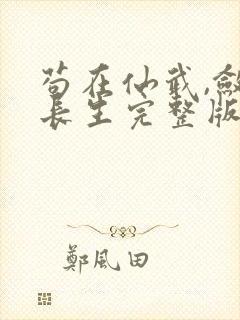 苟在仙武,敛
长生完整版
鄭風田